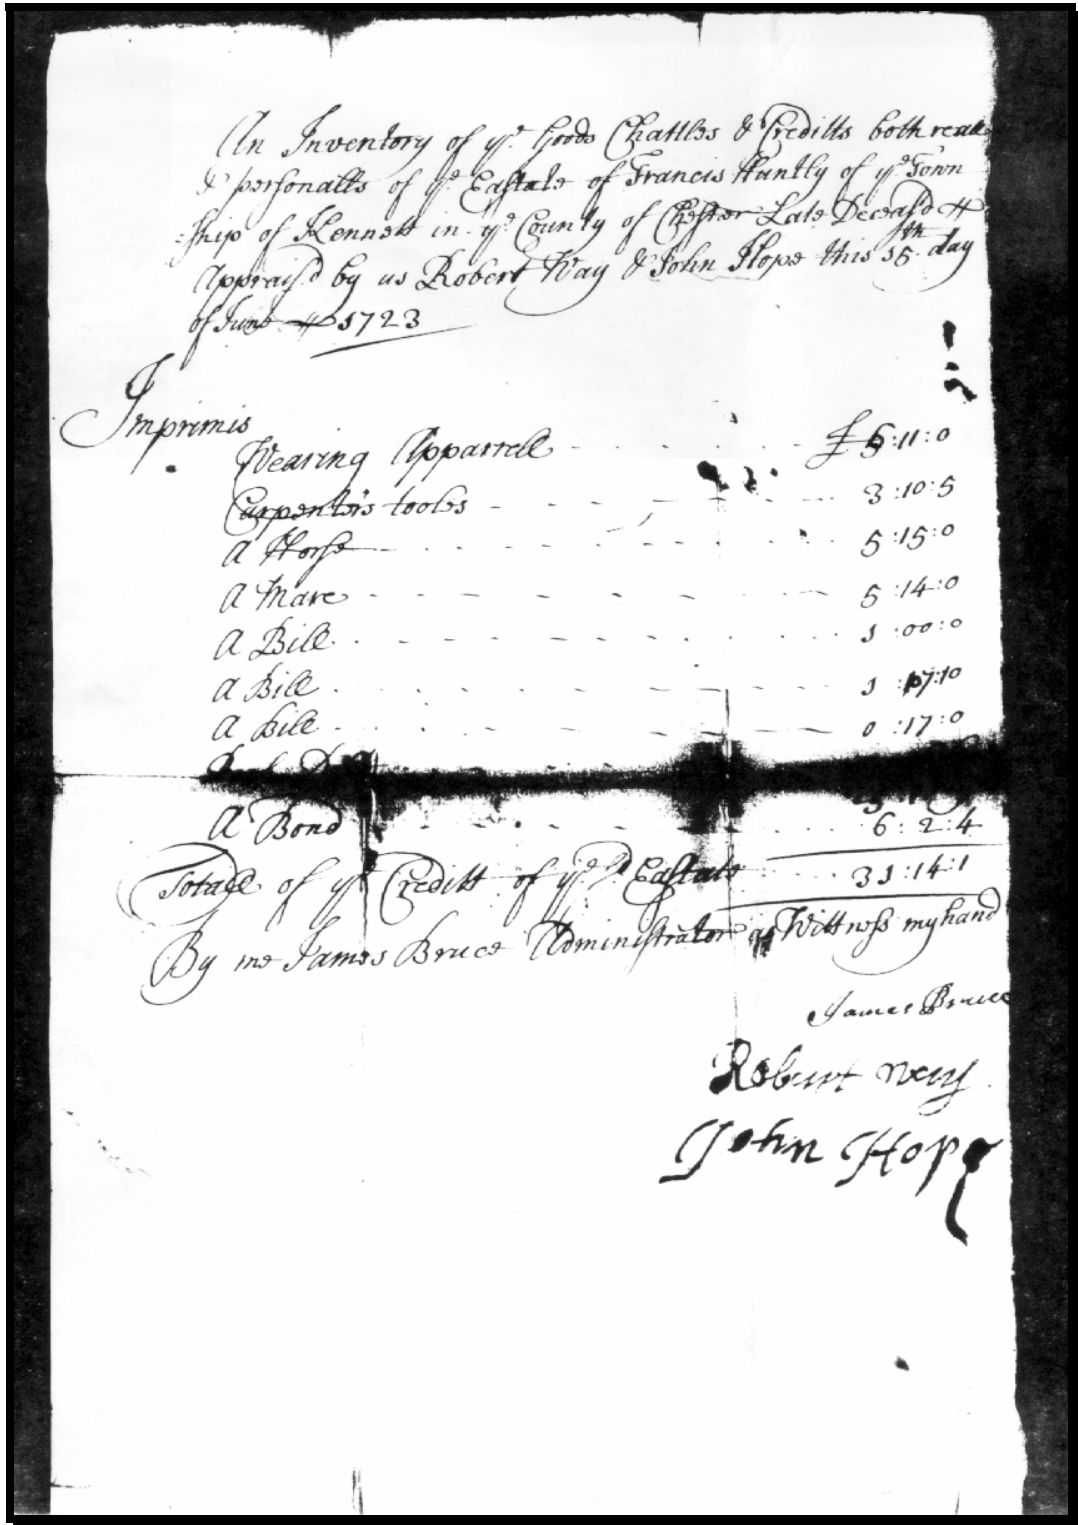 An Inventory of yᵉ Goods Chattles & Creditts both reall
& personalls of yᵉ Eastate of Francis Huntly of yᵉ Town
-ship of Kennett in yᵉ County of Chester Late Deceas'd
Apprais'd by us Robert Way & John Hope this 15th day
of June 1723
Imprimis
Wearing Apparrell £ 5:11:0
Carpenters tooles 3:10:5
A Horse 5:15:0
A Mare 5:14:0
A Bill 1:00:0
A Bill 1:17:10
A Bill 0:17:0
A Bond 6:2:4
Totall of yᵉ Creditt of yᵉ Eastate 31:14:1
By me James Bruce Administrator as Wittness my hand
James Bruce
Robert Way
John Hope